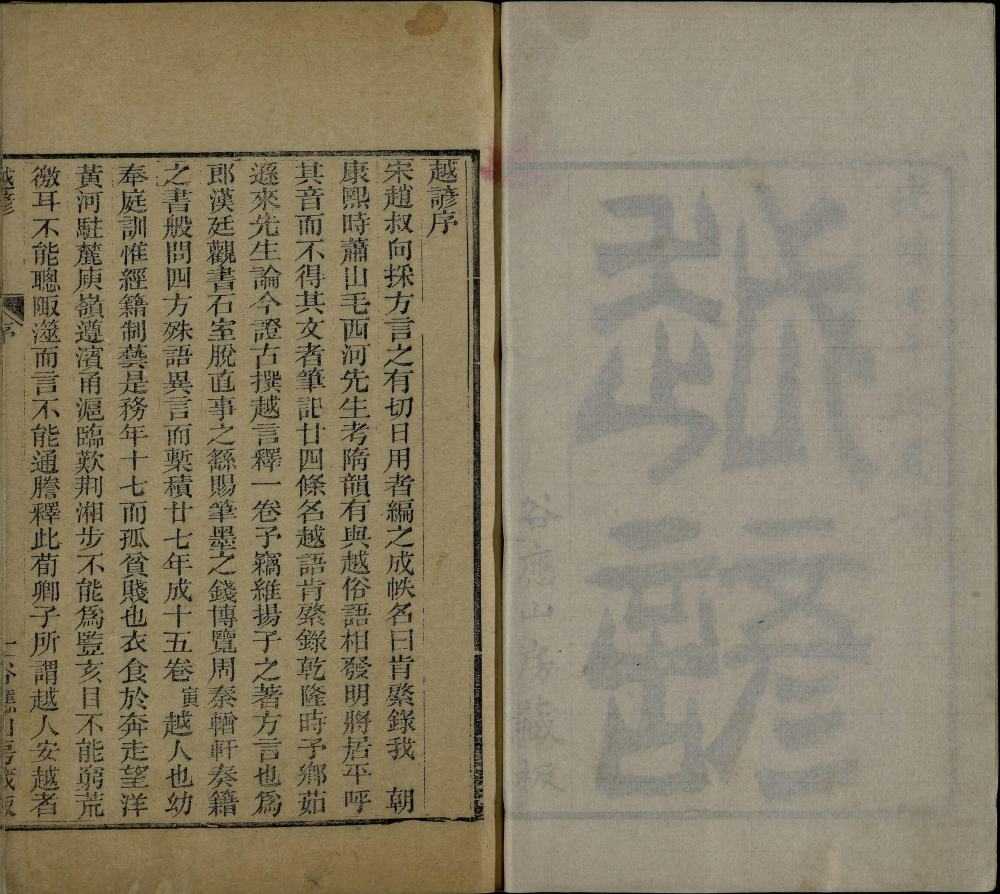 谷應山房藏板
越諺序
宋趙叔向採方言之有切日用者編之成帙名曰肯綮錄我　朝
康熙時蕭山毛西河先生考隋韻有與越俗語相發明將居平呼
其音而不得其文者筆記廿四條名越語肯綮錄乾隆時予鄉茹
遜來先生論今證古撰越言釋一卷予竊維揚子之著方言也爲
郎漢廷觀書石室脫直事之繇賜筆墨之錢博覽周秦輶軒奏籍
之書般問四方殊語異言而槧積廿七年成十五卷寅越人也幼
奉庭訓惟經籍制藝是務年十七而孤貧賤也衣食於奔走望洋
黃河駐麓庾嶺遵濱甬滬臨歎荆湘步不能爲豎亥目不能窮荒
徼耳不能聰陬澨而言不能通謄釋此荀卿子所謂越人安越者
越諺　序　一谷應山房藏板